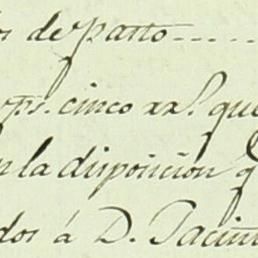 os de patto.....
ps. cinco rr.s que
n la disposicion q
dos á D. Jacin